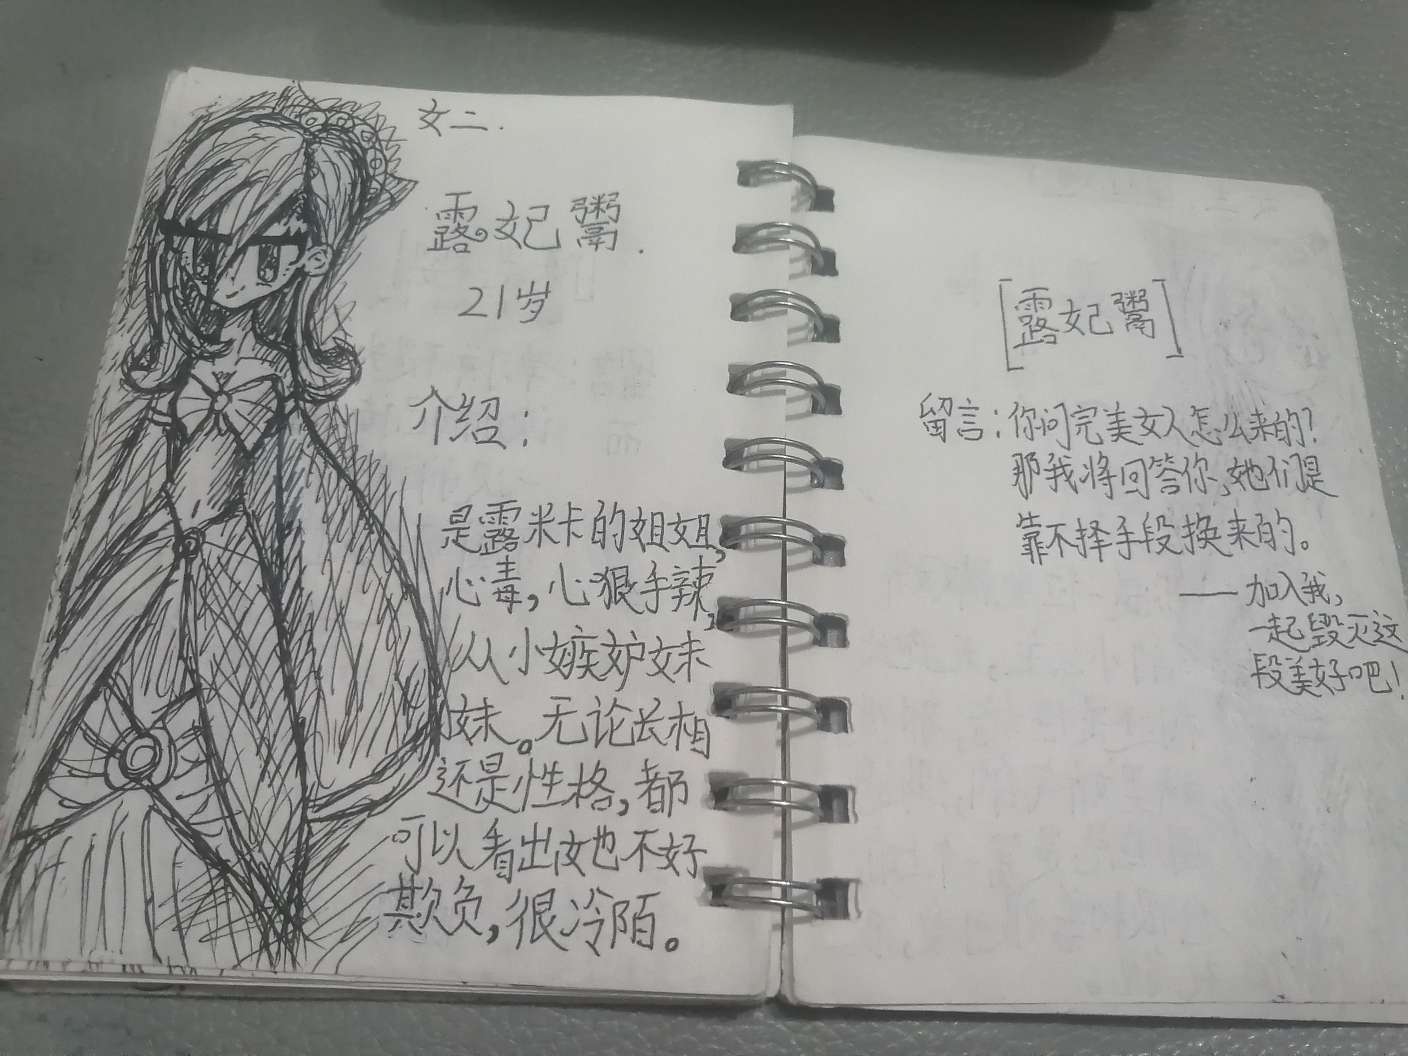 女二.
露妃鬻.
21岁
介绍：
是露米卡的姐姐,
心毒,心狠手辣,
从小嫉妒妹
妹。无论长相
还是性格,都
可以看出她不好
欺负,很冷陌。
[露妃鬻]
留言：你问完美女人怎么来的?
那我将回答你,她们是
靠不择手段换来的。
——加入我,
一起毁灭这
段美好吧!